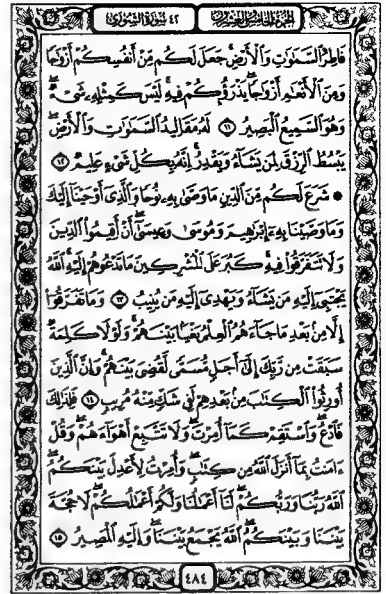 الجزء الخامس والعشرون ٤٢ سورة الشورى
فَاطِرُ ٱلسَّمَٰوَٰتِ وَٱلْأَرْضِ جَعَلَ لَكُم مِّنْ أَنفُسِكُمْ أَزْوَٰجًا
وَمِنَ ٱلْأَنْعَٰمِ أَزْوَٰجًا يَذْرَؤُكُمْ فِيهِ لَيْسَ كَمِثْلِهِۦ شَىْءٌ
وَهُوَ ٱلسَّمِيعُ ٱلْبَصِيرُ ١١ لَهُۥ مَقَالِيدُ ٱلسَّمَٰوَٰتِ وَٱلْأَرْضِ
يَبْسُطُ ٱلرِّزْقَ لِمَن يَشَآءُ وَيَقْدِرُ إِنَّهُۥ بِكُلِّ شَىْءٍ عَلِيمٌ ١٢
* شَرَعَ لَكُم مِّنَ ٱلدِّينِ مَا وَصَّىٰ بِهِۦ نُوحًا وَٱلَّذِىٓ أَوْحَيْنَآ إِلَيْكَ
وَمَا وَصَّيْنَا بِهِۦٓ إِبْرَٰهِيمَ وَمُوسَىٰ وَعِيسَىٰٓ أَنْ أَقِيمُوا۟ ٱلدِّينَ
وَلَا تَتَفَرَّقُوا۟ فِيهِ كَبُرَ عَلَى ٱلْمُشْرِكِينَ مَا تَدْعُوهُمْ إِلَيْهِ ٱللَّهُ
يَجْتَبِىٓ إِلَيْهِ مَن يَشَآءُ وَيَهْدِىٓ إِلَيْهِ مَن يُنِيبُ ١٣ وَمَا تَفَرَّقُوٓا۟
إِلَّا مِنۢ بَعْدِ مَا جَآءَهُمُ ٱلْعِلْمُ بَغْيًۢا بَيْنَهُمْ وَلَوْلَا كَلِمَةٌ
سَبَقَتْ مِن رَّبِّكَ إِلَىٰٓ أَجَلٍ مُّسَمًّى لَّقُضِىَ بَيْنَهُمْ وَإِنَّ ٱلَّذِينَ
أُورِثُوا۟ ٱلْكِتَٰبَ مِنۢ بَعْدِهِمْ لَفِى شَكٍّ مِّنْهُ مُرِيبٍ ١٤ فَلِذَٰلِكَ
فَٱدْعُ وَٱسْتَقِمْ كَمَآ أُمِرْتَ وَلَا تَتَّبِعْ أَهْوَآءَهُمْ وَقُلْ
ءَامَنتُ بِمَآ أَنزَلَ ٱللَّهُ مِن كِتَٰبٍ وَأُمِرْتُ لِأَعْدِلَ بَيْنَكُمُ
ٱللَّهُ رَبُّنَا وَرَبُّكُمْ لَنَآ أَعْمَٰلُنَا وَلَكُمْ أَعْمَٰلُكُمْ لَا حُجَّةَ
بَيْنَنَا وَبَيْنَكُمُ ٱللَّهُ يَجْمَعُ بَيْنَنَا وَإِلَيْهِ ٱلْمَصِيرُ ١٥
٤٨٤